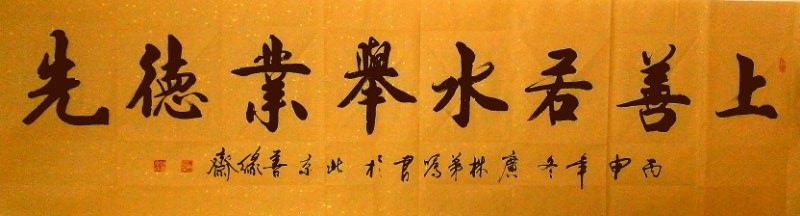 上善若水舉業德先
丙申年冬廣林弟寫書於北京善緣齋